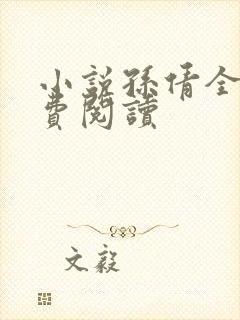 小說孫倩全
費閱讀
文毅